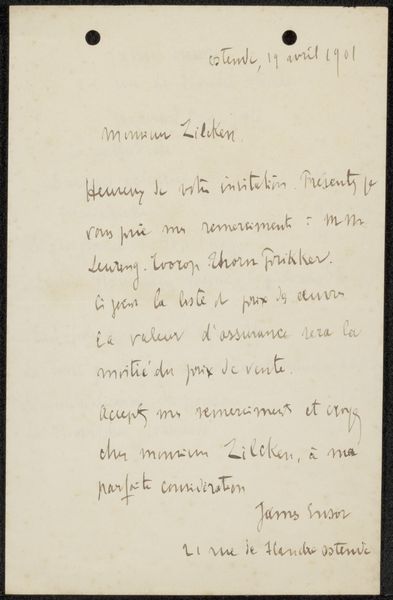 ostende, 19 avril 1901
Monsieur Zilcken.
Heureux de votre invitation. Présentez je
vous prie mes remerciments à M M
Toorop Thorn Prikker.
Ci joint la liste et prix des œuvres
La valeur d'assurance sera la
moitié du prix de vente.
Acceptez mes remerciments et croyez
cher monsieur Zilcken, à ma
parfaite considération
James Ensor
21 rue de Flandre ostende